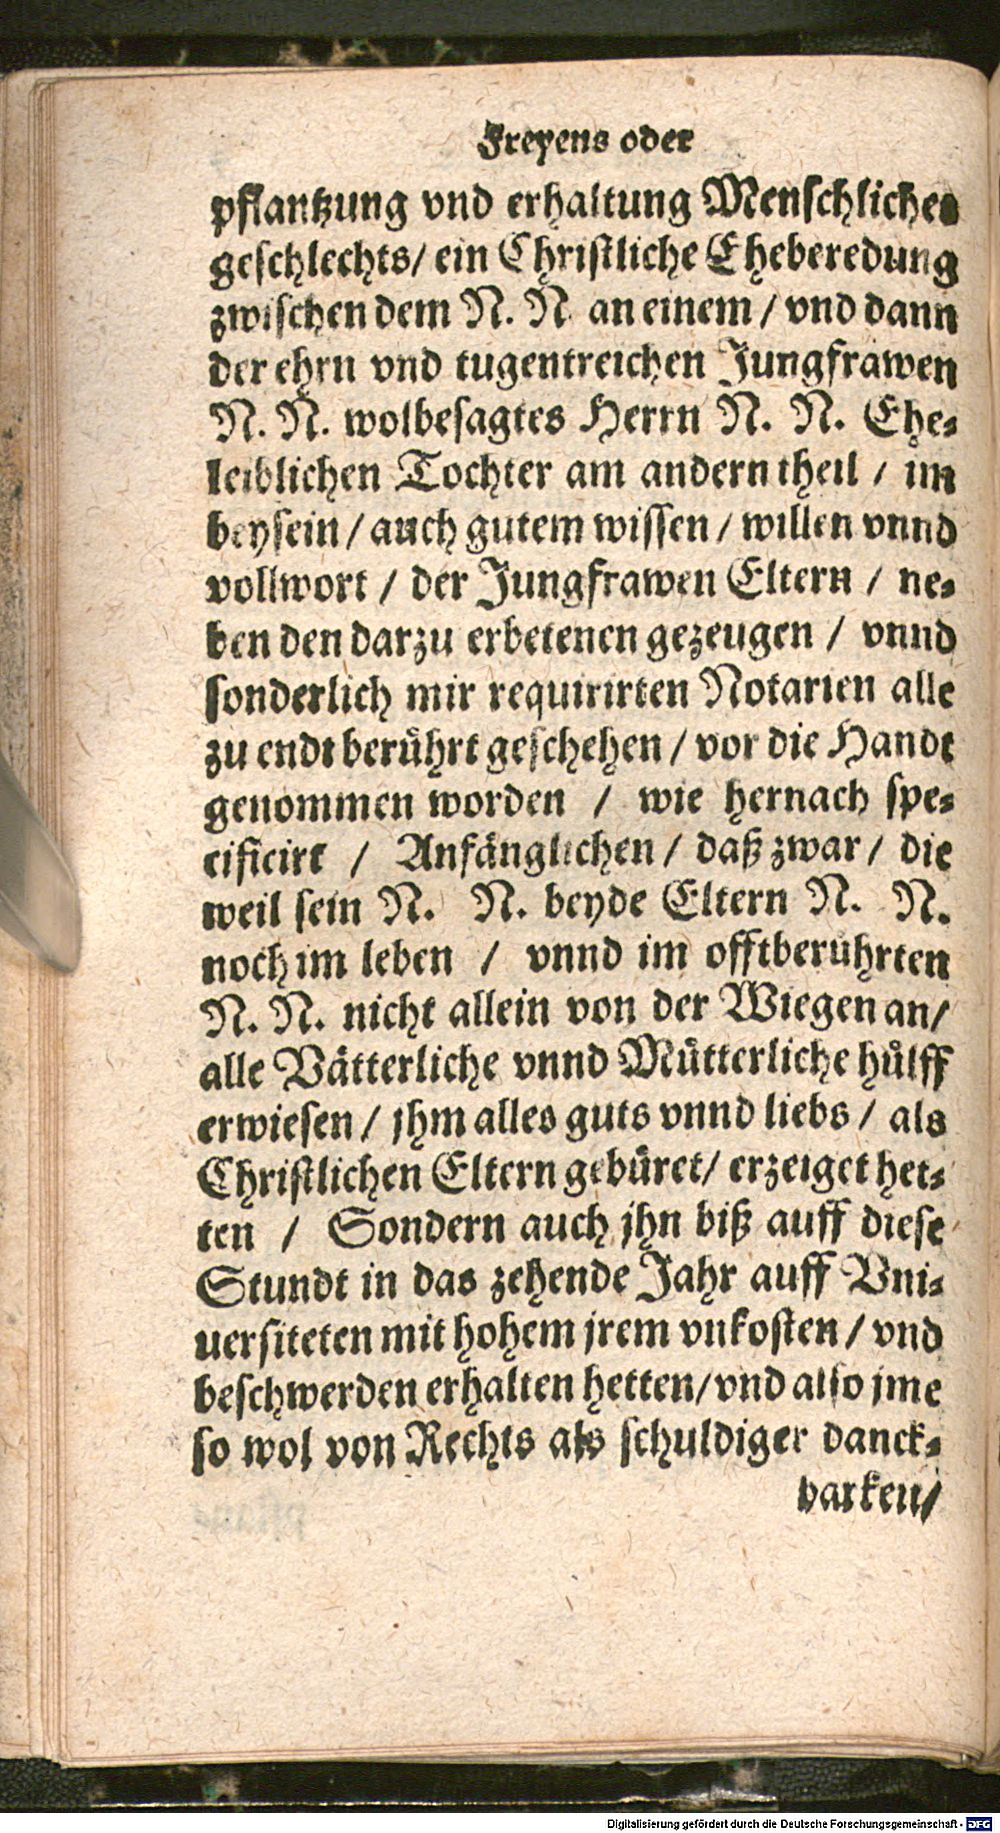 Freyens oder
pflantzung vnd erhaltung Menschliches
geschlechts/ ein Christliche Eheberedung
zwischen dem N. N an einem / vnd dann
der ehrn vnd tugentreichen Jungfrawen
N. N. wolbesagtes Herrn N. N. Ehe-
leiblichen Tochter am andern theil / im
beysein / auch gutem wissen / willen vnnd
vollwort / der Jungfrawen Eltern / ne-
ben den darzu erbetenen gezeugen / vnnd
sonderlich mir requirirten Notarien alle
zu endt berührt geschehen / vor die Handt
genommen worden / wie hernach spe-
cificirt / Anfänglichen / daß zwar / die
weil sein N. N. beyde Eltern N. N.
noch im leben / vnnd im offtberührten
N. N. nicht allein von der Wiegen an/
alle Vätterliche vnnd Mütterliche hülff
erwiesen / jhm alles guts vnnd liebs / als
Christlichen Eltern gebüret/ erzeiget het-
ten / Sondern auch jhn biß auff diese
Stundt in das zehende Jahr auff Vni-
uersiteten mit hohem jrem vnkosten / vnd
beschwerden erhalten hetten/ vnd also jme
so wol von Rechts als schuldiger danck-
barkeit/
Digitalisierung gefördert durch die Deutsche Forschungsgemeinschaft - DFG